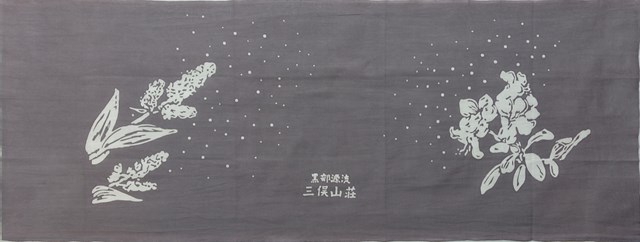 黒部源流
三俣山荘